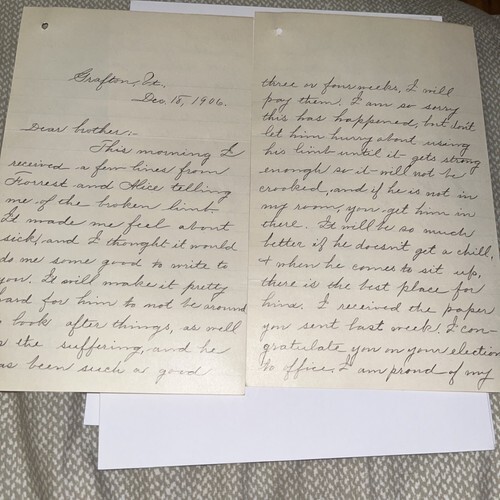 Grafton, Vt.
Dec. 15, 1906.
Dear brother:-
This morning I
received a few lines from
Forrest and Alice telling
me of the broken limb.
It made me feel about
sick, and I thought it would
do me some good to write to
you. It will make it pretty
hard for him to not be around
look after things, as well
as the suffering, and he
has been such a good
three or four weeks. I will
pay them. I am so sorry
this has happened, but don't
let him hurry about using
his limb until it gets strong
enough so it will not be
crooked, and if he is not in
my room, you get him in
there. It will be so much
better if he doesn't get a chill,
& when he comes to sit up,
there is the best place for
him. I received the paper
you sent last week. I con-
gratulate you on your election
to office, I am proud of my